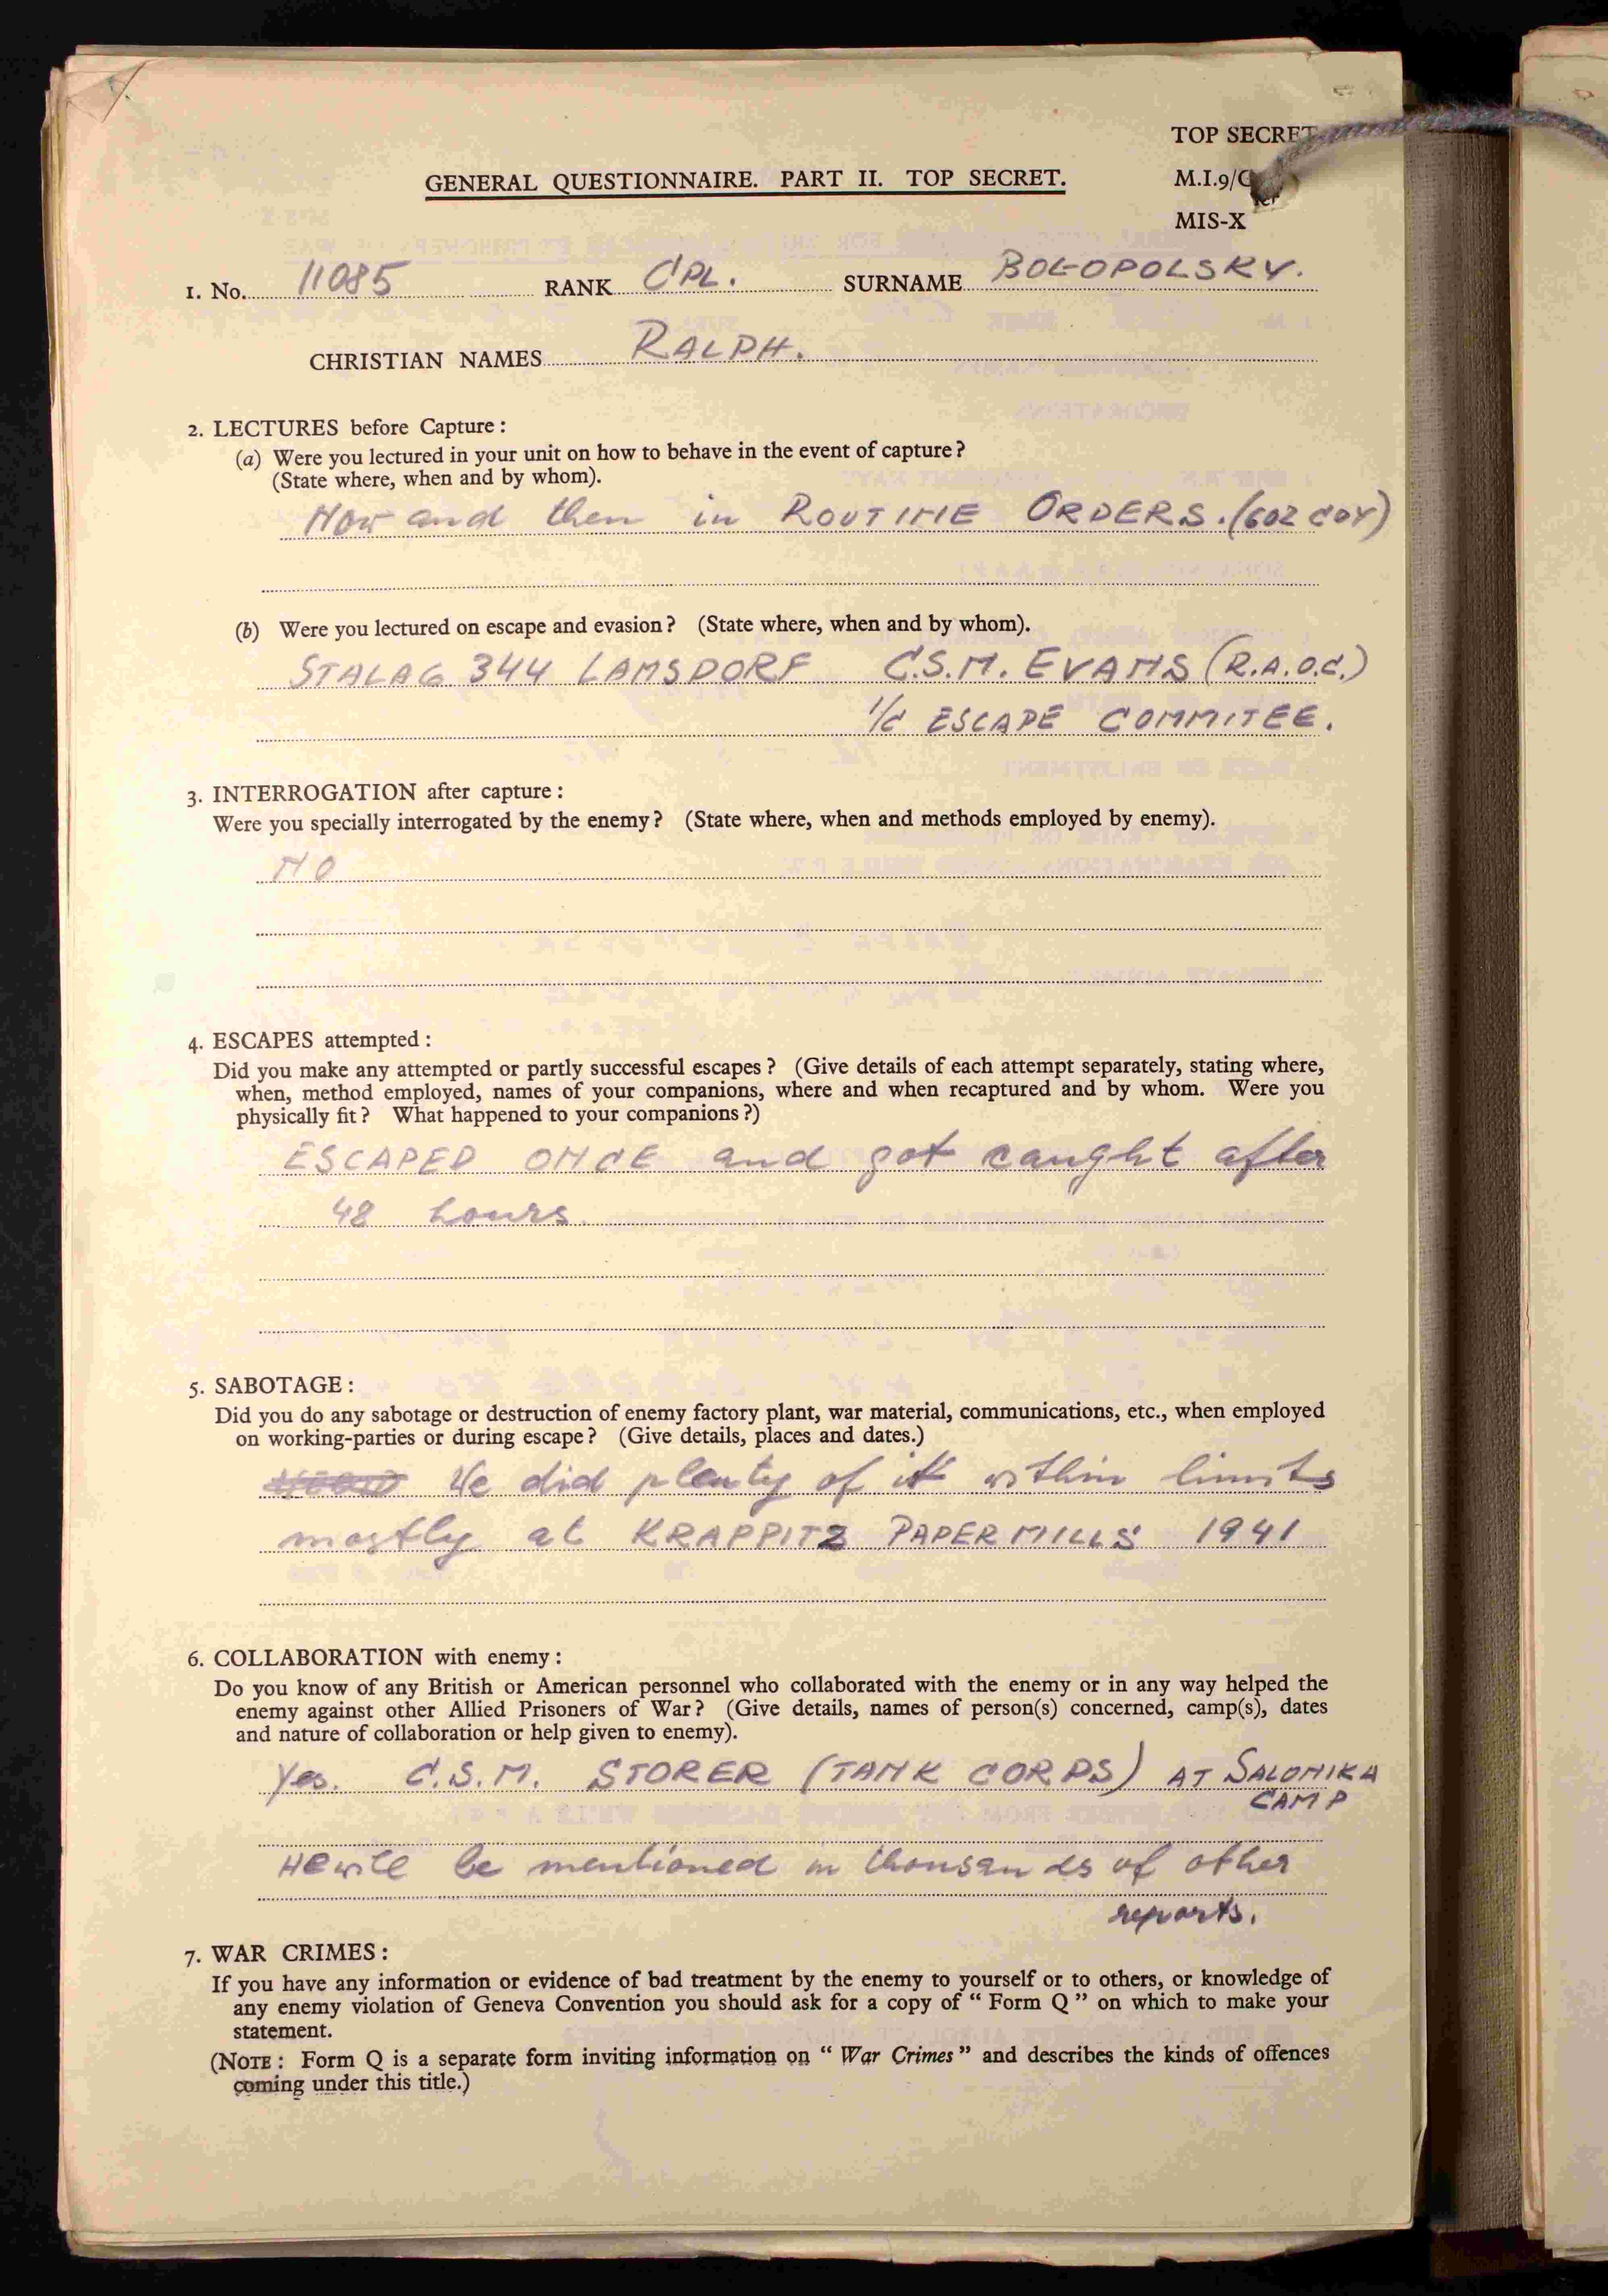 TOP SECRET
GENERAL QUESTIONNAIRE. PART II. TOP SECRET.
M.I.9/G
MIS-X
1. No. 11085 RANK CPL. SURNAME BOGOPOLSKY.
CHRISTIAN NAMES RALPH.
2. LECTURES before Capture :
(a) Were you lectured in your unit on how to behave in the event of capture ?
(State where, when and by whom).
Now and then in ROUTINE ORDERS. (602 COY)
(b) Were you lectured on escape and evasion ? (State where, when and by whom).
STALAG 344 LAMSDORF C.S.M. EVANS (R.A.O.C.)
I/C ESCAPE COMMITEE.
3. INTERROGATION after capture :
Were you specially interrogated by the enemy ? (State where, when and methods employed by enemy).
NO
4. ESCAPES attempted :
Did you make any attempted or partly successful escapes ? (Give details of each attempt separately, stating where,
when, method employed, names of your companions, where and when recaptured and by whom. Were you
physically fit ? What happened to your companions ?)
ESCAPED ONCE and got caught after
48 hours
5. SABOTAGE :
Did you do any sabotage or destruction of enemy factory plant, war material, communications, etc., when employed
on working-parties or during escape ? (Give details, places and dates.)
We did plenty of it within limits
mostly at KRAPPITZ PAPERMILLS 1941
6. COLLABORATION with enemy :
Do you know of any British or American personnel who collaborated with the enemy or in any way helped the
enemy against other Allied Prisoners of War ? (Give details, names of person(s) concerned, camp(s), dates
and nature of collaboration or help given to enemy).
Yes. C.S.M. STORER (TANK CORPS) AT SALONIKA
CAMP
HE will be mentioned in thousands of other
reports.
7. WAR CRIMES :
If you have any information or evidence of bad treatment by the enemy to yourself or to others, or knowledge of
any enemy violation of Geneva Convention you should ask for a copy of " Form Q " on which to make your
statement.
(NOTE : Form Q is a separate form inviting information on " War Crimes " and describes the kinds of offences
coming under this title.)